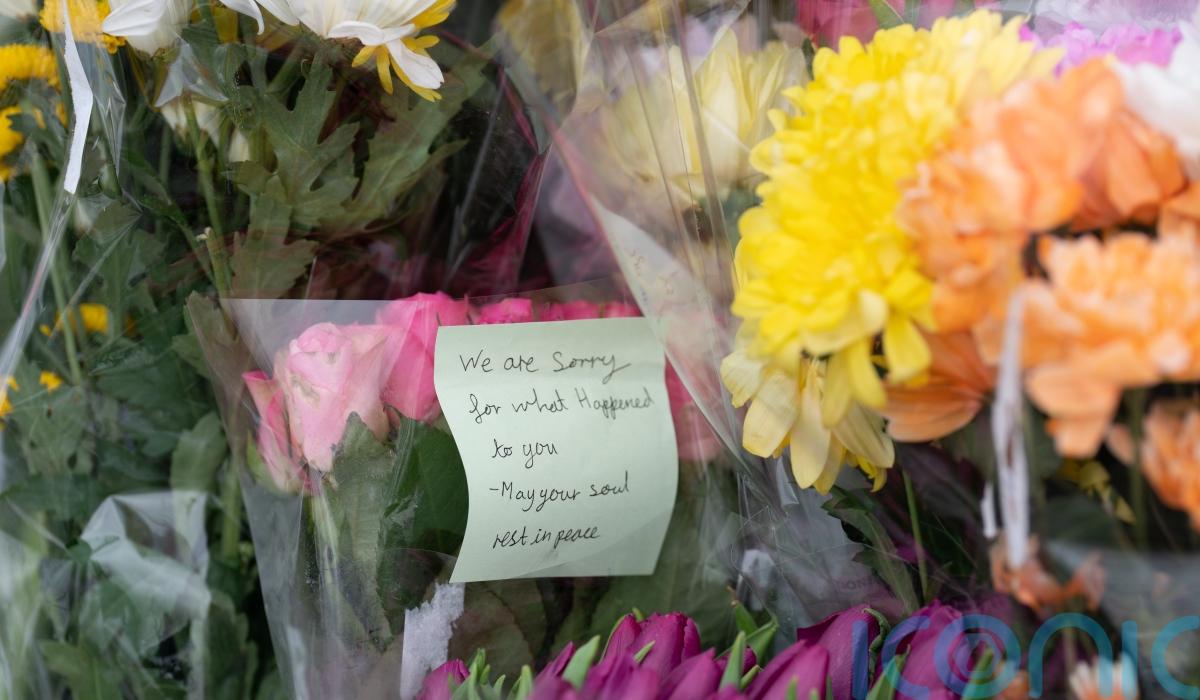 We are Sorry
for what Happened
to you
-May your soul
rest in peace
iconic